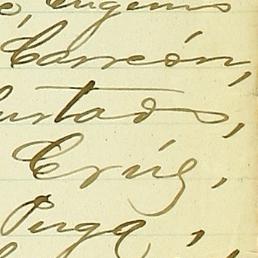 e, Eugenio
Carreón,
urtado,
Crúz,
Puga,